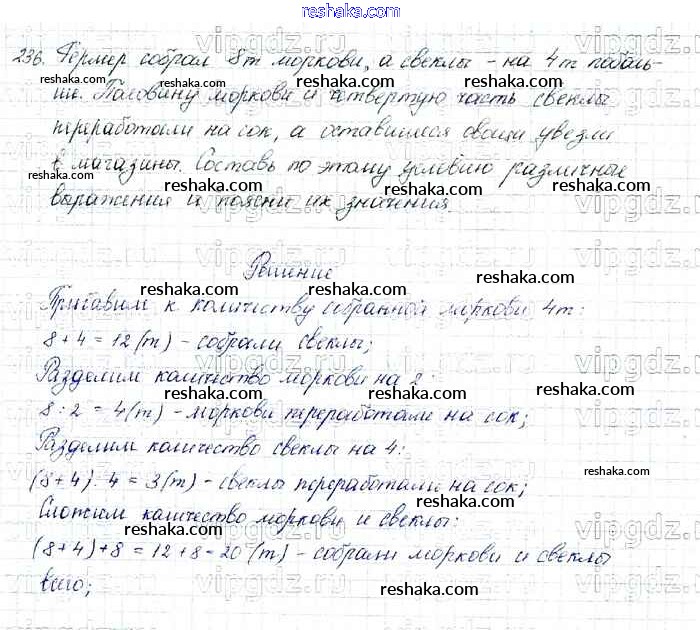 reshaka.com
236. Фермер собрал 8т моркови, а свеклы - на 4т поболь-
ше. Половину моркови и четвертую часть свеклы
переработали на сок, а оставшиеся овощи увезли
в магазины. Составь по этому условию различные
выражения и поясни их значения.
Решение
Прибавим к количеству собранной моркови 4т:
8+4=12(т) - собрали свеклы;
Разделим количество моркови на 2:
8:2=4(т) - моркови переработали на сок;
Разделим количество свеклы на 4:
(8+4):4=3(т) - свеклы переработали на сок;
Сложим количество моркови и свеклы:
(8+4)+8=12+8=20(т) - собрали моркови и свеклы
всего;